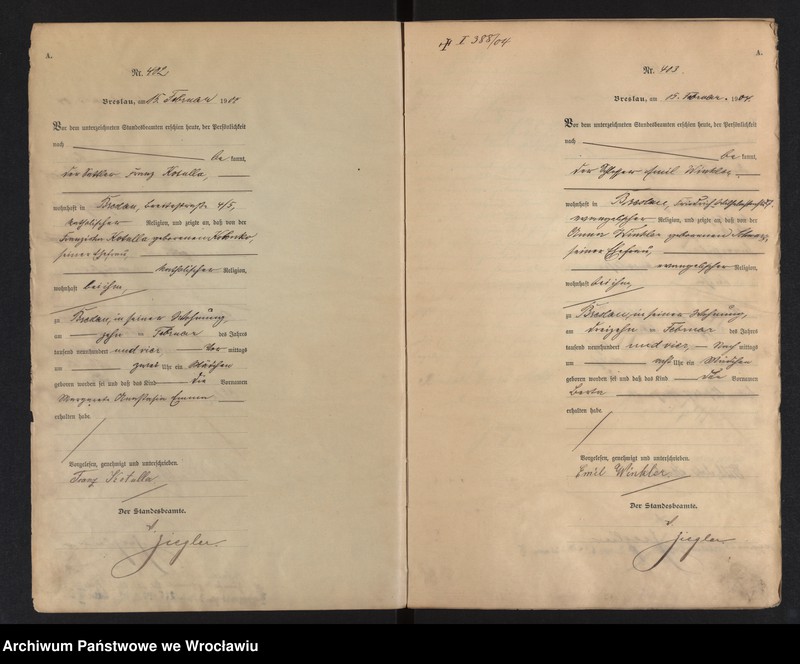 A.
Nr. 402
Breslau, am 15. Februar 19
Vor dem unterzeichneten Standesbeamten erschien heute, der Persönlichkeit
nach
be kannt,
der Franz Kotulla,
wohnhaft in Brockau, 4/5,
katholischer Religion, und zeigte an, daß von der
Franziska Kotulla geborenen
seiner Ehefrau,
katholischer Religion,
wohnhaft bei ihm,
zu Brockau, in seiner Wohnung,
am zehn ten Februar des Jahres
tausend neunhundert und vier, Vor mittags
um zwei Uhr ein Mädchen
geboren worden sei und daß das Kind die Vornamen
Margarete Anastasia Emma
erhalten habe.
Vorgelesen, genehmigt und unterschrieben.
Franz Kotulla
Der Standesbeamte.
Ziegler
X 388/04
A.
Nr. 403.
Breslau, am 15. Februar. 1904
Vor dem unterzeichneten Standesbeamten erschien heute, der Persönlichkeit
nach
be kannt,
der Emil Winkler,
wohnhaft in Brockau,
evangelischer Religion, und zeigte an, daß von der
Winkler geborenen
seiner Ehefrau,
evangelischer Religion,
wohnhaft bei ihm,
zu Brockau, in seiner Wohnung,
am dreizehn ten Februar des Jahres
tausend neunhundert und vier, Nach mittags
um acht Uhr ein Mädchen
geboren worden sei und daß das Kind den Vornamen
erhalten habe.
Vorgelesen, genehmigt und unterschrieben.
Emil Winkler.
Der Standesbeamte.
Ziegler
Archiwum Państwowe we Wrocławiu